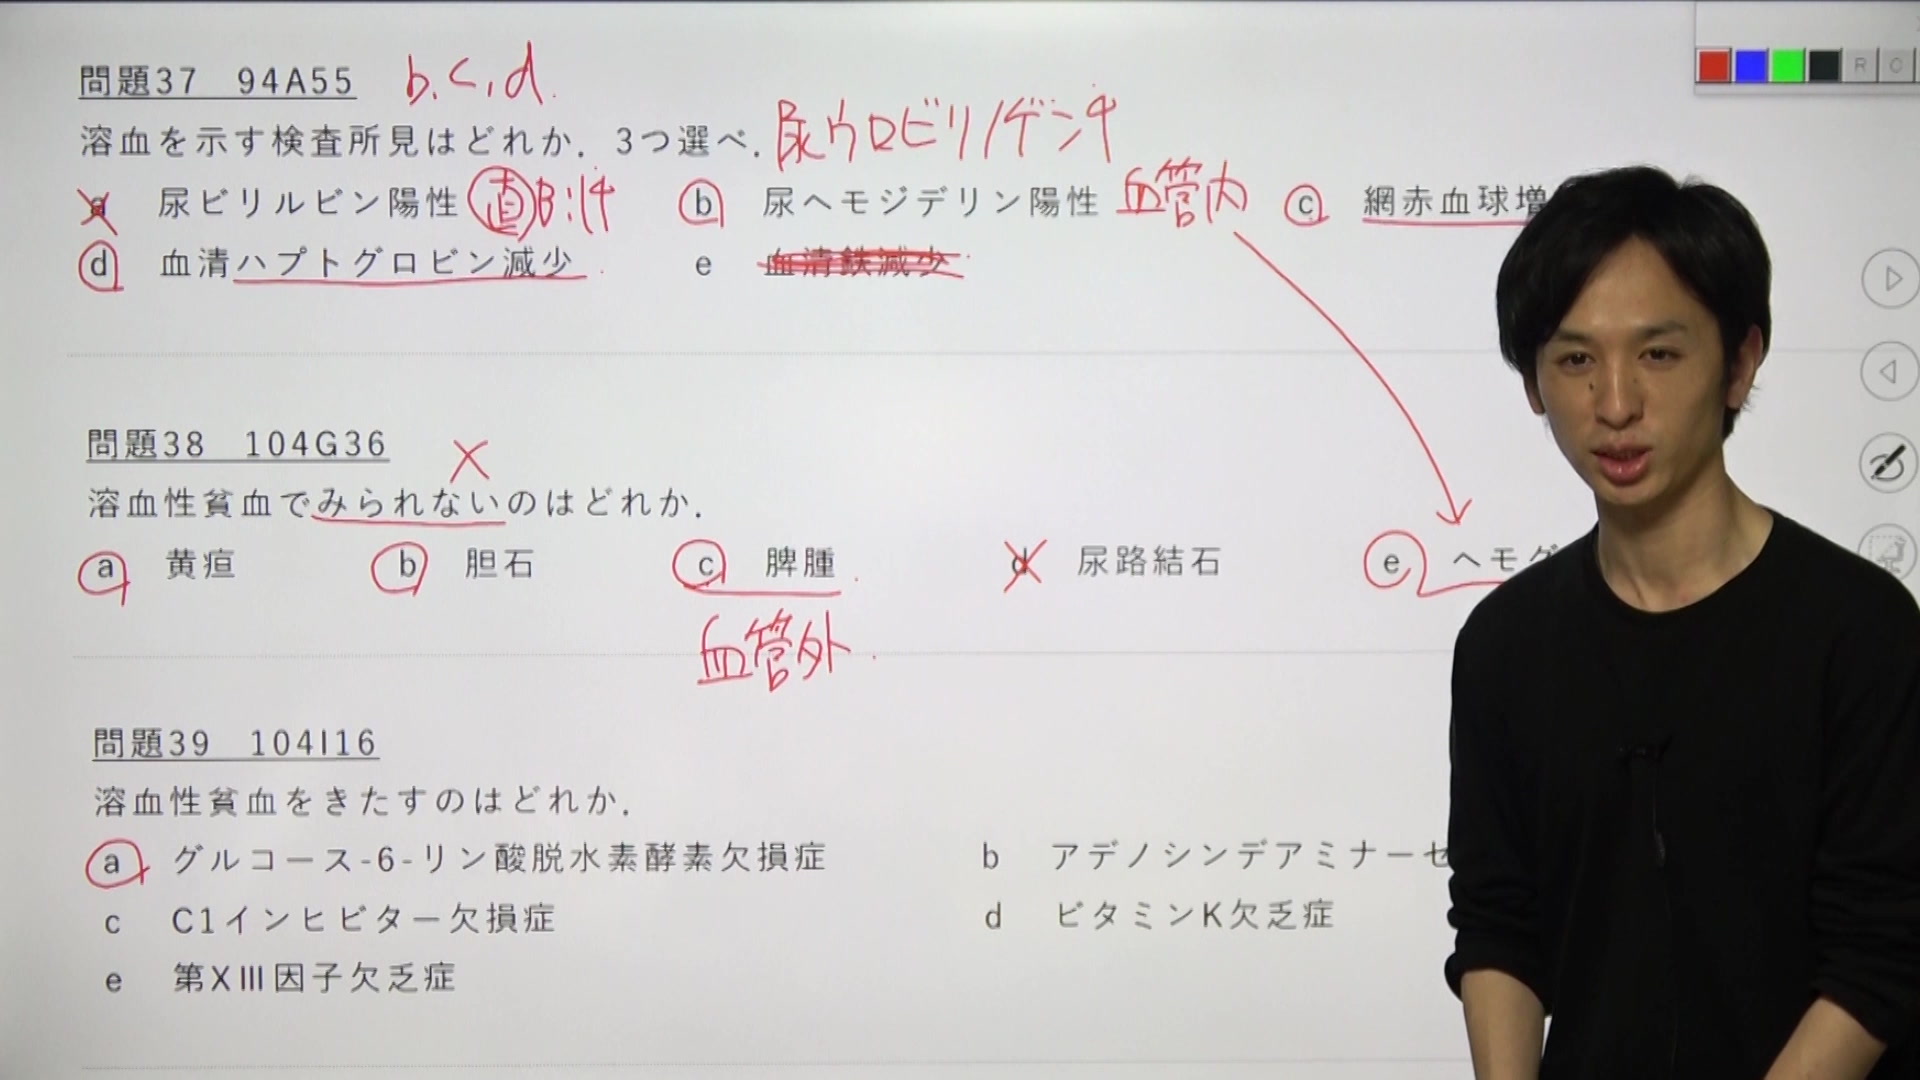 問題37 94A55 b.c.d.
溶血を示す検査所見はどれか. 3つ選べ. 尿ウロビリノゲン↑
a 尿ビリルビン陽性 直Bil↑ b 尿ヘモジデリン陽性 血管内 c 網赤血球増
d 血清ハプトグロビン減少 e 血清鉄減少
R C
問題38 104G36 ×
溶血性貧血でみられないのはどれか.
a 黄疸 b 胆石 c 脾腫 d 尿路結石 e ヘモグ
血管外
問題39 104I16
溶血性貧血をきたすのはどれか.
a グルコース-6-リン酸脱水素酵素欠損症 b アデノシンデアミナーセ
c C1インヒビター欠損症 d ビタミンK欠乏症
e 第XIII因子欠乏症